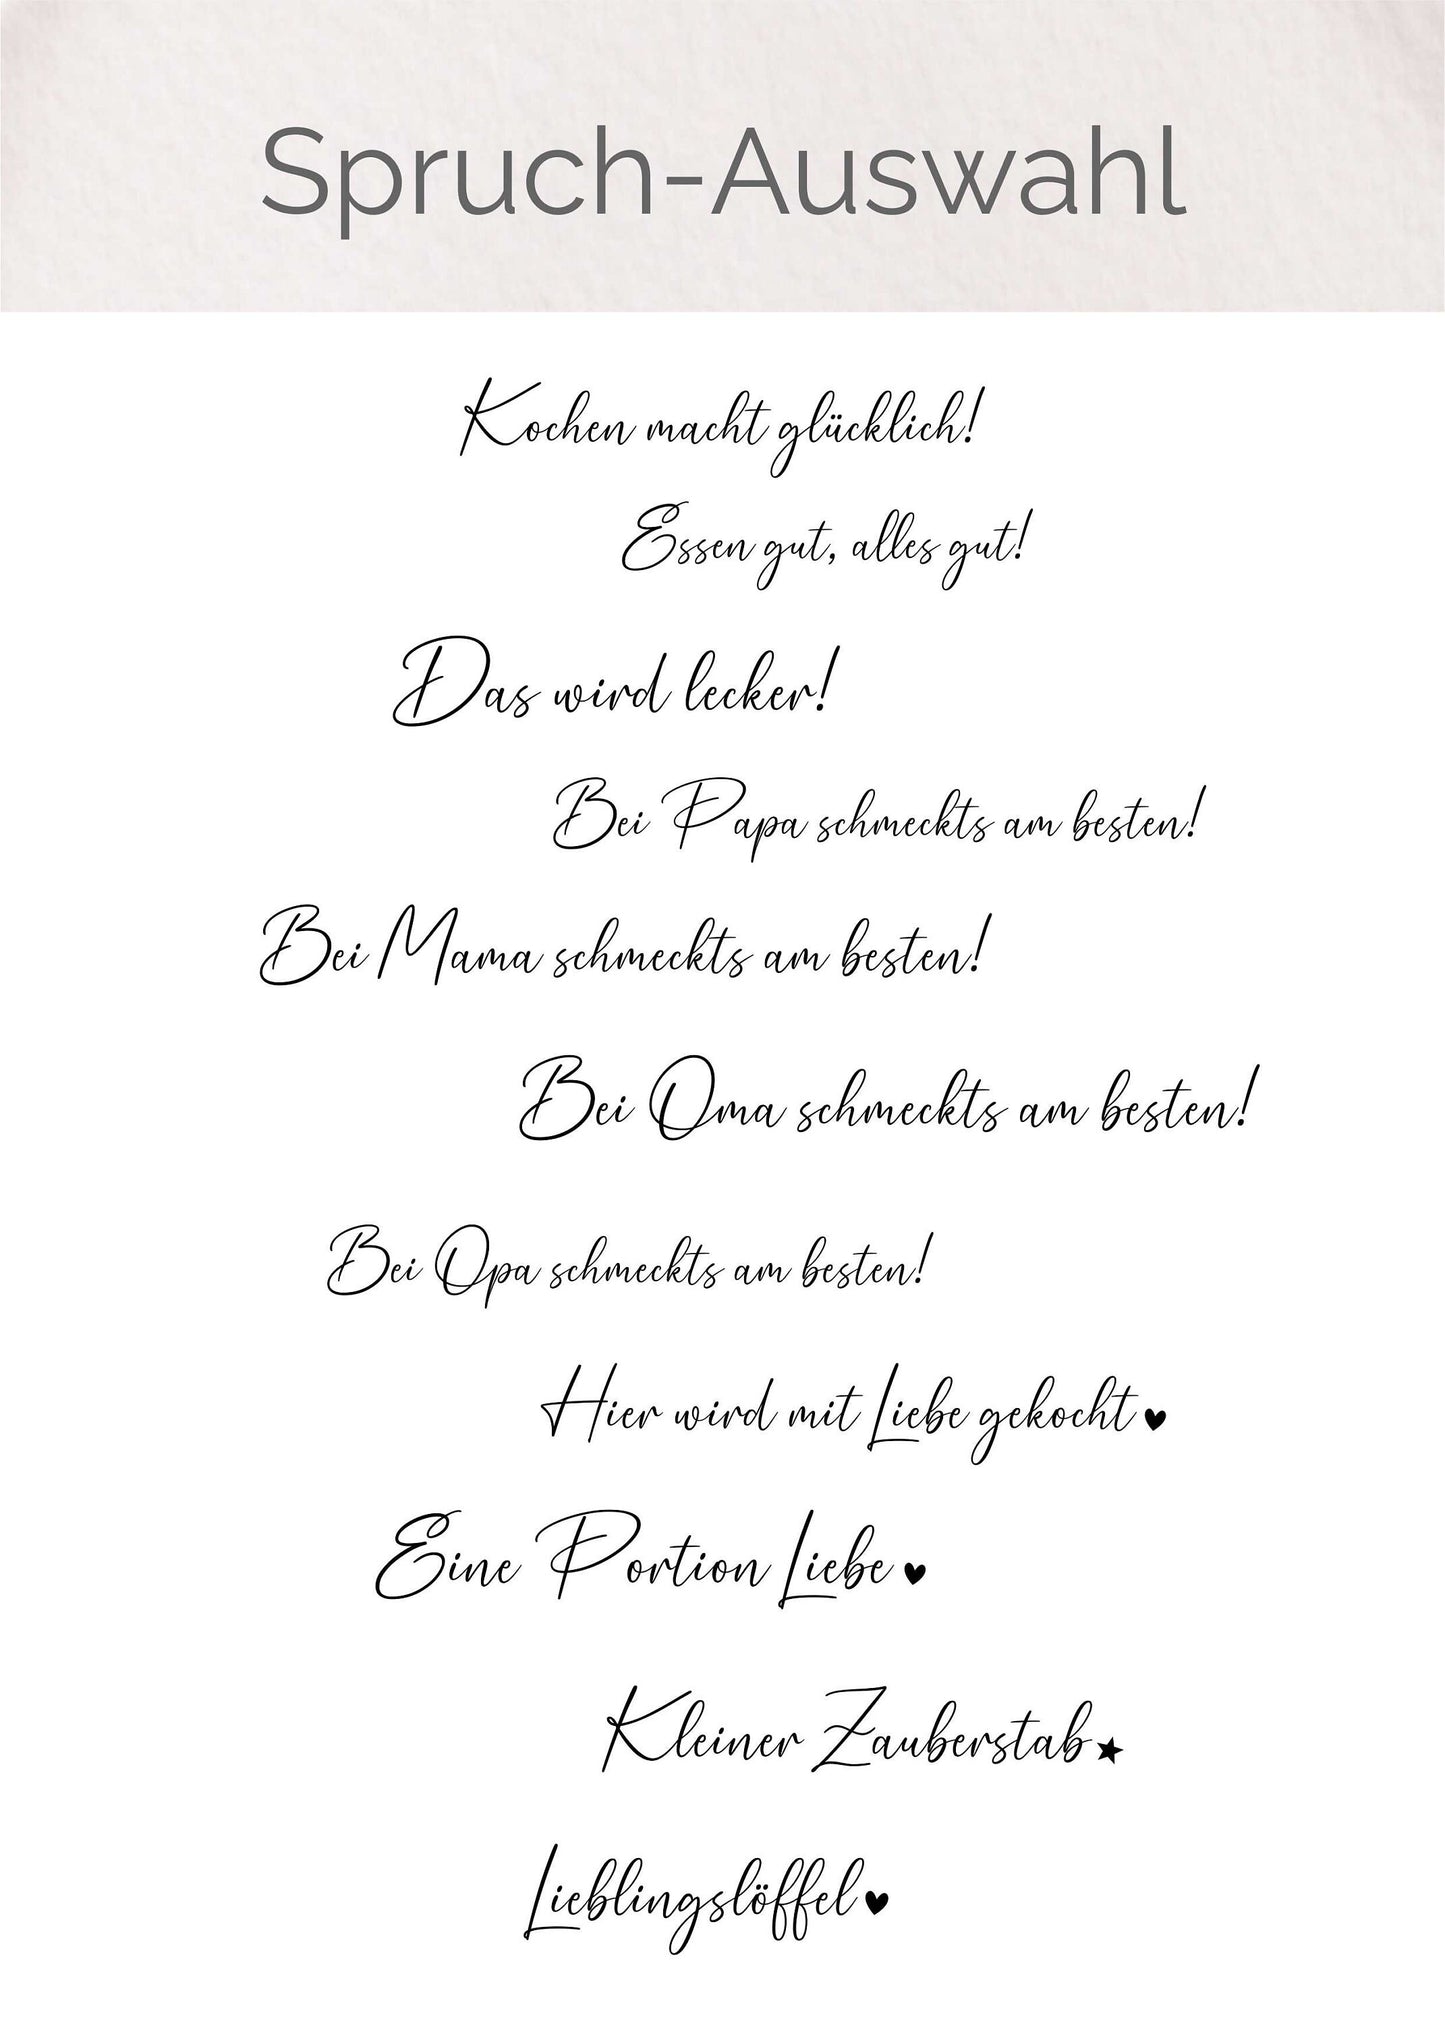 Spruch-Auswahl
Kochen macht glücklich!
Essen gut, alles gut!
Das wird lecker!
Bei Papa schmeckts am besten!
Bei Mama schmeckts am besten!
Bei Oma schmeckts am besten!
Bei Opa schmeckts am besten!
Hier wird mit Liebe gekocht♥
Eine Portion Liebe♥
Kleiner Zauberstab★
Lieblingslöffel♥